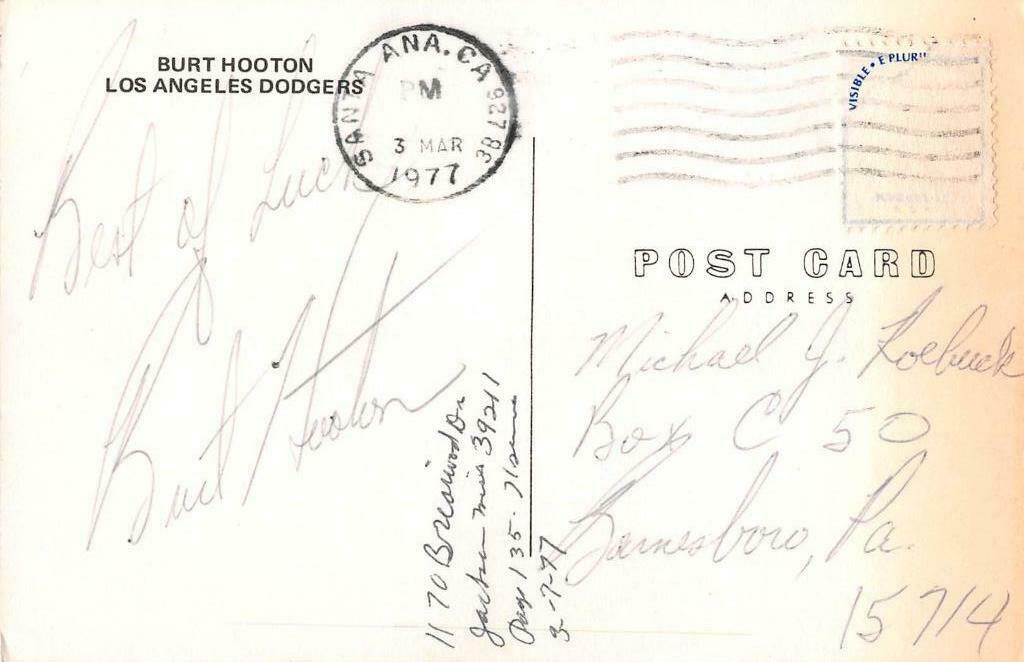 BURT HOOTON
LOS ANGELES DODGERS
Best of Luck
Burt Hooton
SANTA ANA. CA 927 38
PM
3 MAR
1977
VISIBLE • E PLURI
POST CARD
ADDRESS
Michael J. Roebuck
Box C 50
Barnesboro, Pa.
15714
1170 Briarwood Dr
Jackson Miss 39211
Page 135
3-7-77